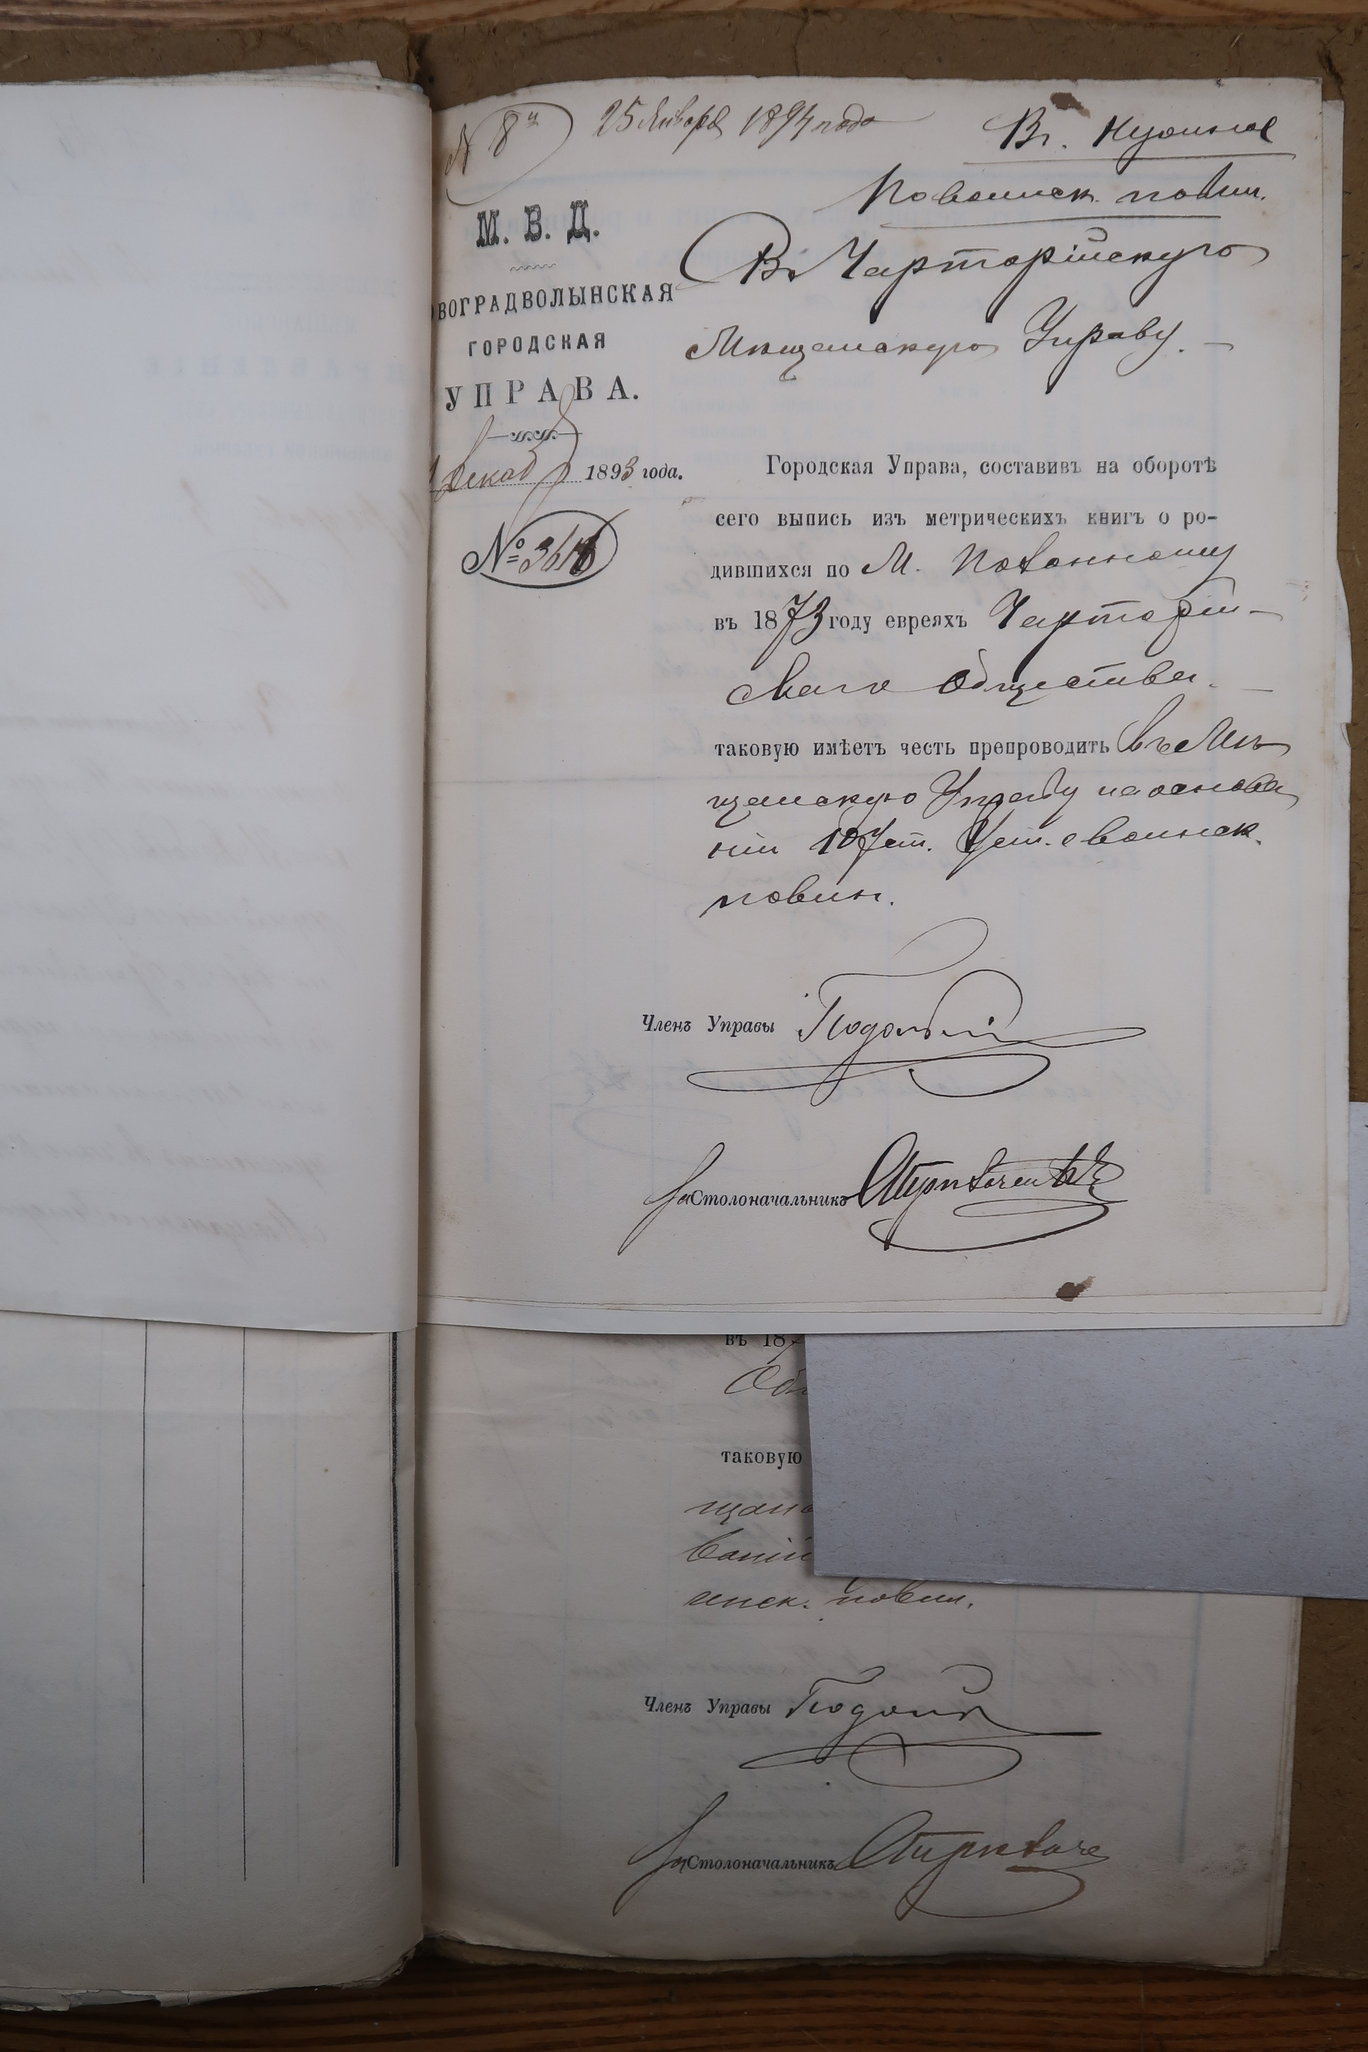 № 8й 25 Января 1894 года
Въ. Нужное
По воинск. повин.
М. В. Д.
ВОГРАДВОЛЫНСКАЯ
ГОРОДСКАЯ
УПРАВА.
Декаб 1893 года.
№
Въ Чарторійскую
Мѣщанскую Управу.
Городская Управа, составивъ на оборотѣ
сего выпись изъ метрическихъ книгъ о ро-
дившихся по М.
въ 1873 году евреяхъ Чарторій-
скаго Общества.
таковую имѣетъ честь препроводить въ Мѣ
щанскую Управу на основа
ніи 107 ст. Уст. о воинск.
повин.
Членъ Управы
За Столоначальникъ
въ 18
таковую
щанс
ваніи
инск. повин.
Членъ Управы
За Столоначальникъ